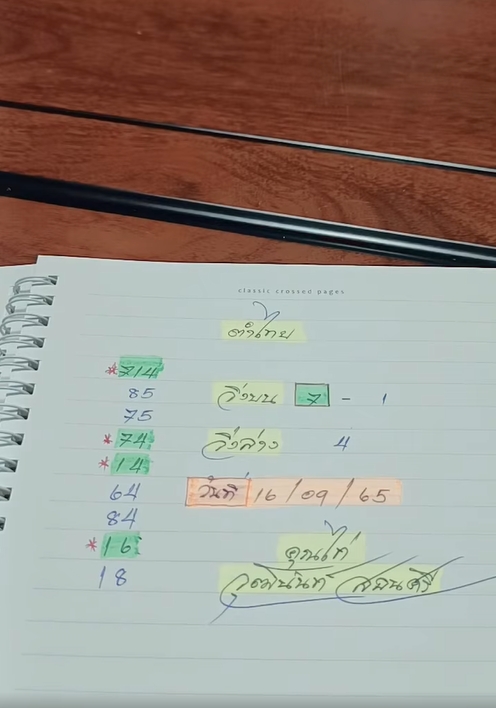 classic crossed pages
คำไทย
*714
85 วิ่งบน 7 - 1
75
*74 วิ่งล่าง 4
*14
64 วันที่ 16/09/65
84
*16 คุณไก่
18